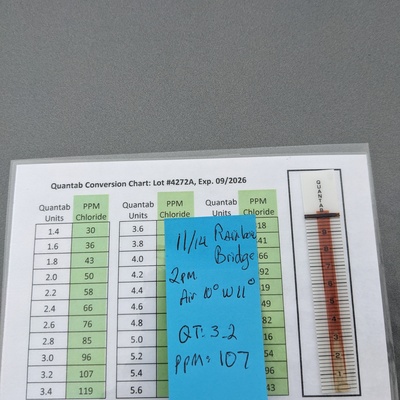 Quantab Conversion Chart: Lot #4272A, Exp. 09/2026
Quantab Units PPM Chloride
1.4 30
1.6 36
1.8 43
2.0 50
2.2 58
2.4 66
2.6 76
2.8 85
3.0 96
3.2 107
3.4 119
Quantab Units PPM
3.6
3.8
4.0
4.2
4.4
4.6
4.8
5.0
5.2
5.4
5.6
PPM Chloride
11/14 Rainbow
Bridge
2pm
Air 10° W 11°
QT: 3.2
PPM: 107
QUANTAB
9
8
7
6
5
4
3
2
1